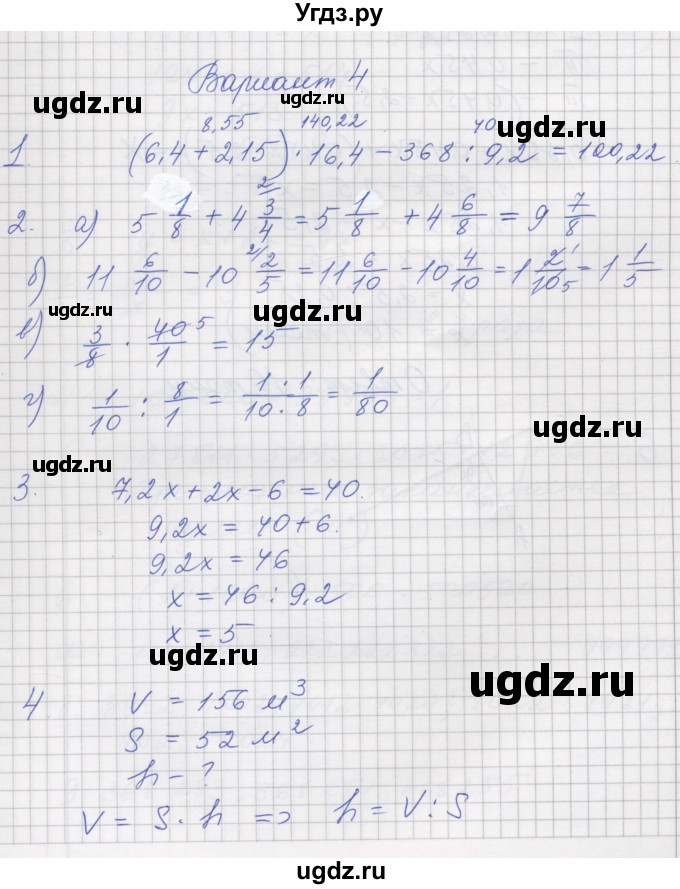 Угдз.ру
Вариант 4
ugdz.ru
ugdz.ru
ugdz.ru
8,55 140,22 40
1. (6,4 + 2,15) · 16,4 − 368 : 9,2 = 100,22
2. а) 5 1/8 + 4 3/4 = 5 1/8 + 4 6/8 = 9 7/8
б) 11 6/10 − 10 2/5 = 11 6/10 − 10 4/10 = 1 2/10 = 1 1/5
ugdz.ru
ugdz.ru
ugdz.ru
в) 3/8 · 40/1 = 15
г) 1/10 : 8/1 = 1 · 1/10 · 8 = 1/80
ugdz.ru
ugdz.ru
ugdz.ru
3. 7,2x + 2x − 6 = 40.
9,2x = 40 + 6.
9,2x = 46
x = 46 : 9,2
x = 5
ugdz.ru
ugdz.ru
ugdz.ru
4 V = 156 м³
S = 52 м²
h − ?
V = S · h => h = V : S
ugdz.ru
ugdz.ru
ugdz.ru